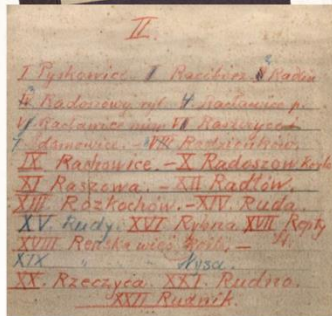 II.
I Pyskowice II Racibórz III Radun
IV Radoszowy ryb V Racławice p.
VI Racławice niem. VII Raszczyce
Adamowice. - VIII Radzionków
IX Rachowice. - X Radoszow Kozle
XI Raszowa. - XII Radłów.
XIII Rozkochów. - XIV. Ruda.
XV. Rudy. XVI Rybna XVII Repty
XVIII Rońska wieś Koźle. -
XIX " Nysa.
XX. Rzeczyca. XXI. Rudno.
XXII Rudnik.